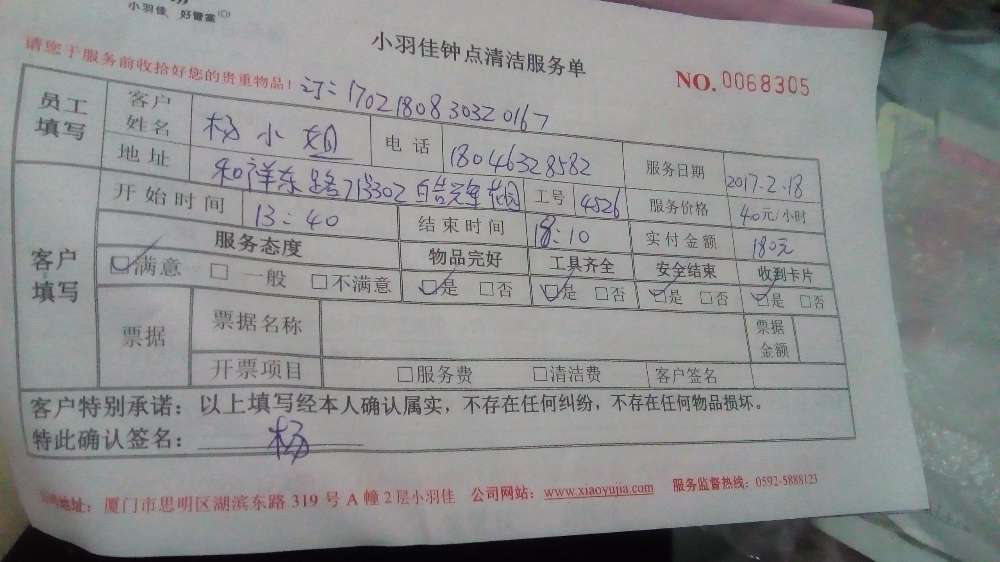 小羽佳 好管家
小羽佳钟点清洁服务单
NO. 0068305
请您于服务前收拾好您的贵重物品！
订：17021808303020167
员工填写 客户姓名 杨小姐 电话 18046328582 服务日期 2017.2.18
地址 和祥东路71号302 工号 4526 服务价格 40元/小时
客户填写 开始时间 13：40 结束时间 18：10 实付金额 180元
服务态度 物品完好 工具齐全 安全结束 收到卡片
☑满意 □一般 □不满意 ☑是 □否 ☑是 □否 ☑是 □否 ☑是 □否
票据 票据名称 票据金额
开票项目 □服务费 □清洁费 客户签名
客户特别承诺：以上填写经本人确认属实，不存在任何纠纷，不存在任何物品损坏。
特此确认签名： 杨
地址：厦门市思明区湖滨东路 319 号 A 幢 2 层小羽佳 公司网站：www.xiaoyujia.com 服务监督热线：0592-5888123